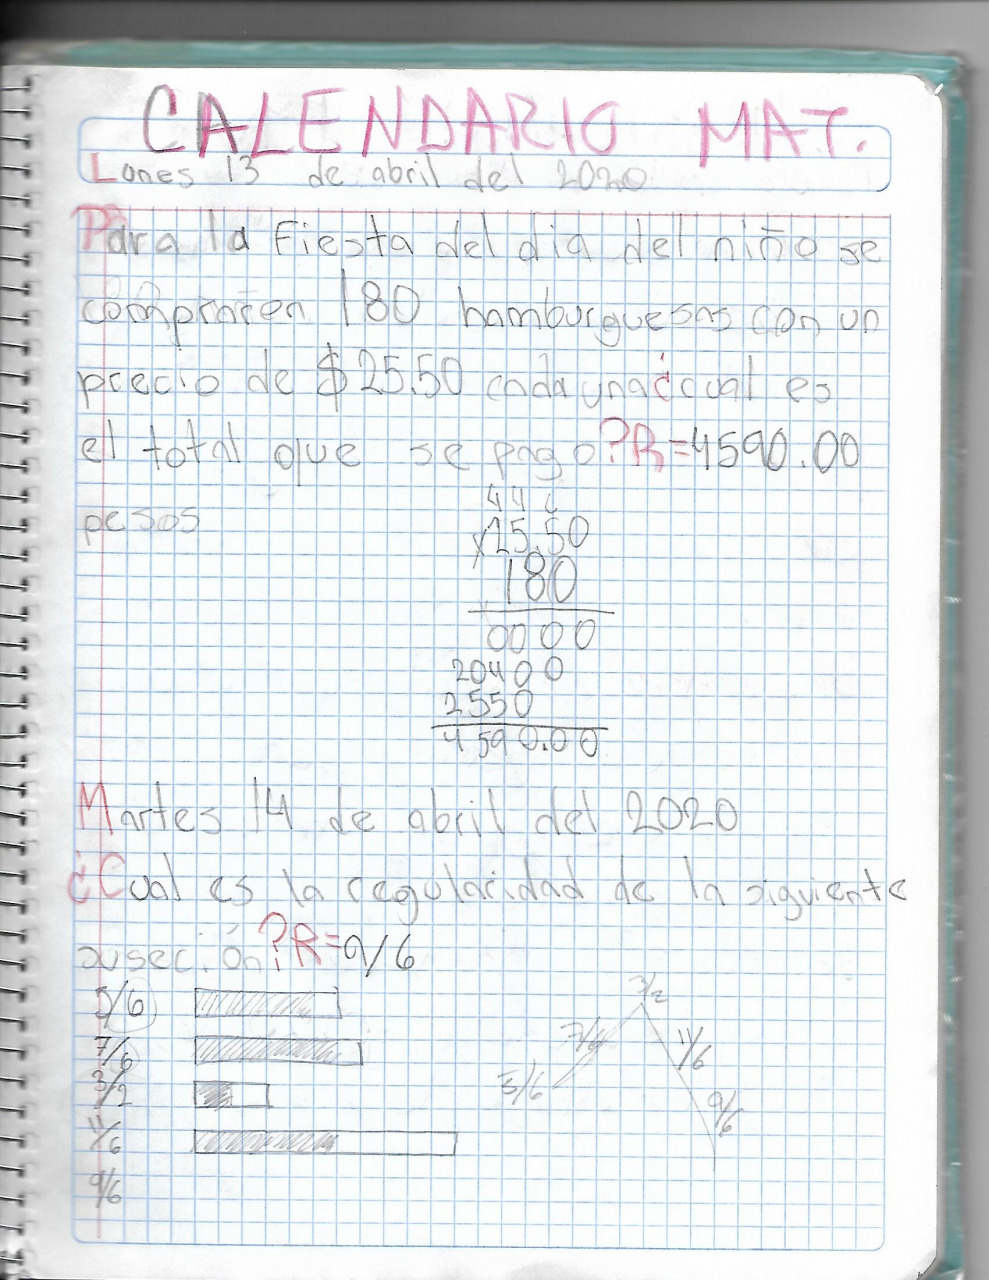 CALENDARIO MAT.
Lones 13 de abril del 2020
Para la Fiesta del dia del niño se
compraron 180 hamburguesas con un
precio de $25.50 cada una¿cual es
el total que se pago?R=4590.00
pesos
44
x25.50
180
0000
20400
2550
4590.00
Martes 14 de abril del 2020
¿Cual es la regularidad de la siguiente
suseción?R=9/6
5/6
7/6
3/2
11/6
9/6
3/2
7/6
11/6
5/6
9/6